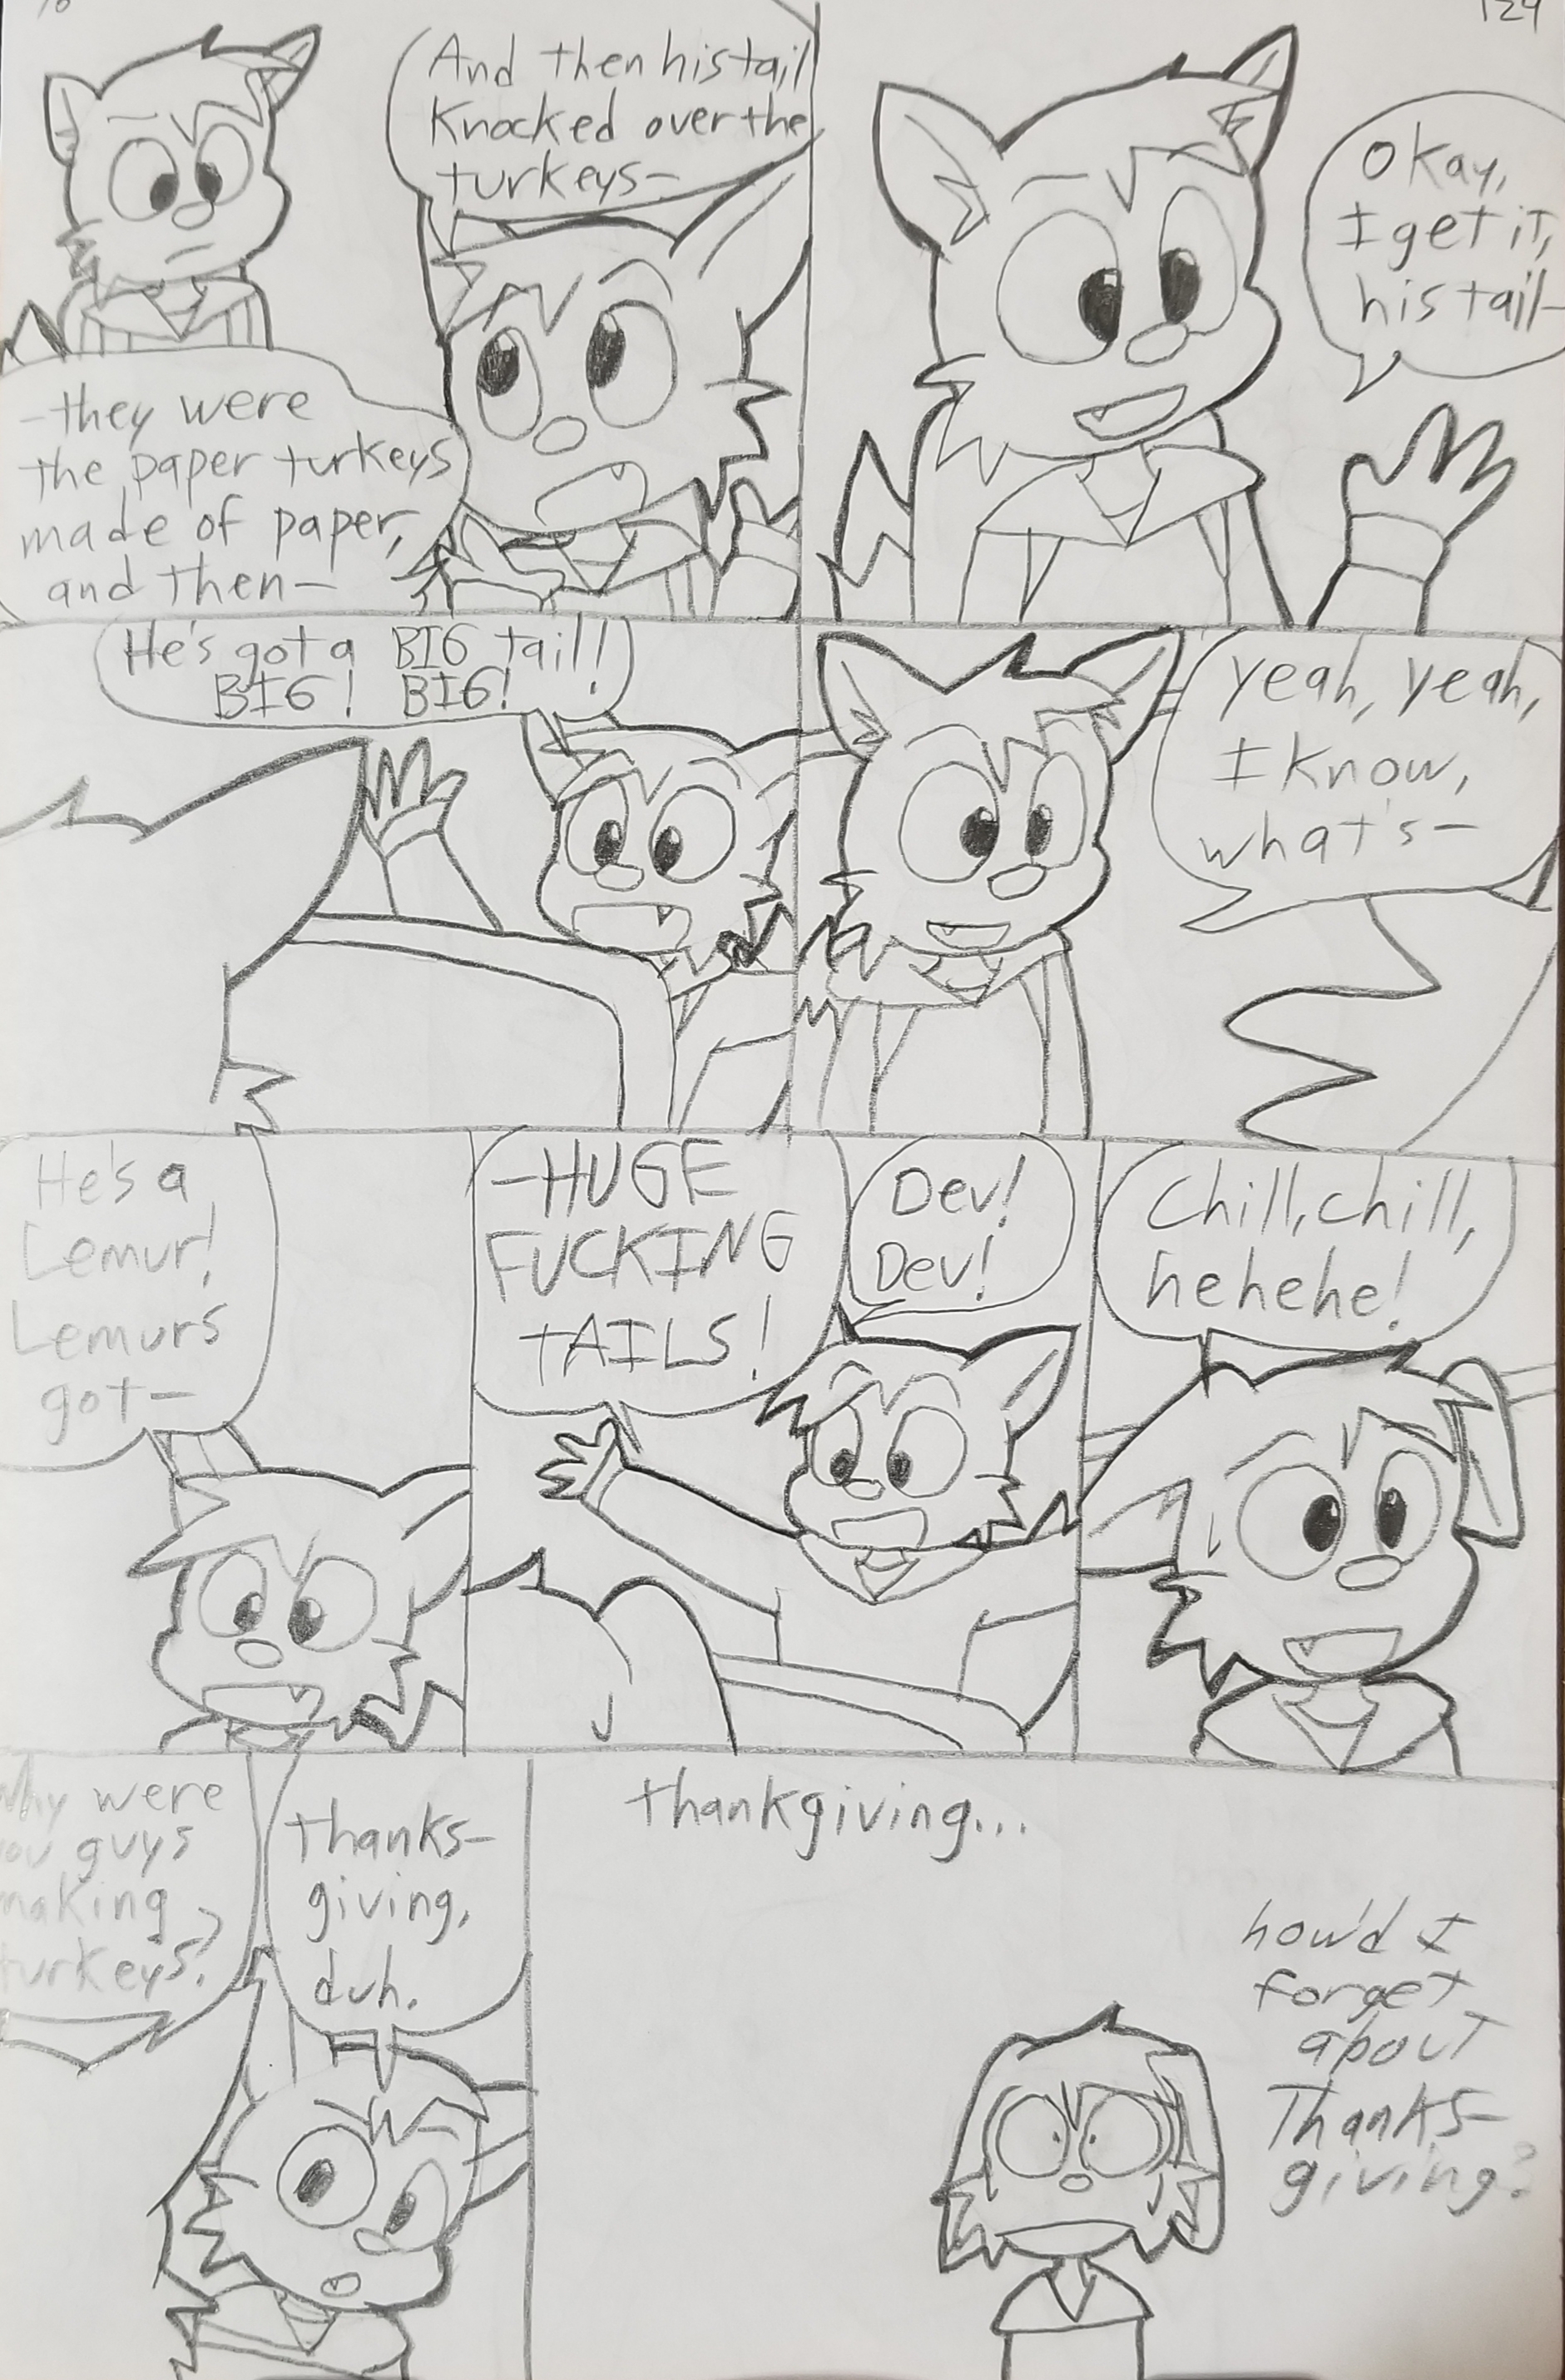 129
And then his tail
Knocked over the
turkeys-
-they were
the paper turkeys
made of paper,
and then-
Okay,
I get it,
his tail-
He's got a BIG tail!
BIG! BIG!
Yeah, yeah,
I know,
what's-
He's a
Lemur!
Lemurs
got-
-HUGE
FUCKING
TAILS!
Dev!
Dev!
Chill, chill,
hehehe!
Why were
you guys
making
turkeys?
Thanks-
giving,
duh.
Thankgiving...
how'd I
forget
about
Thanks-
giving?